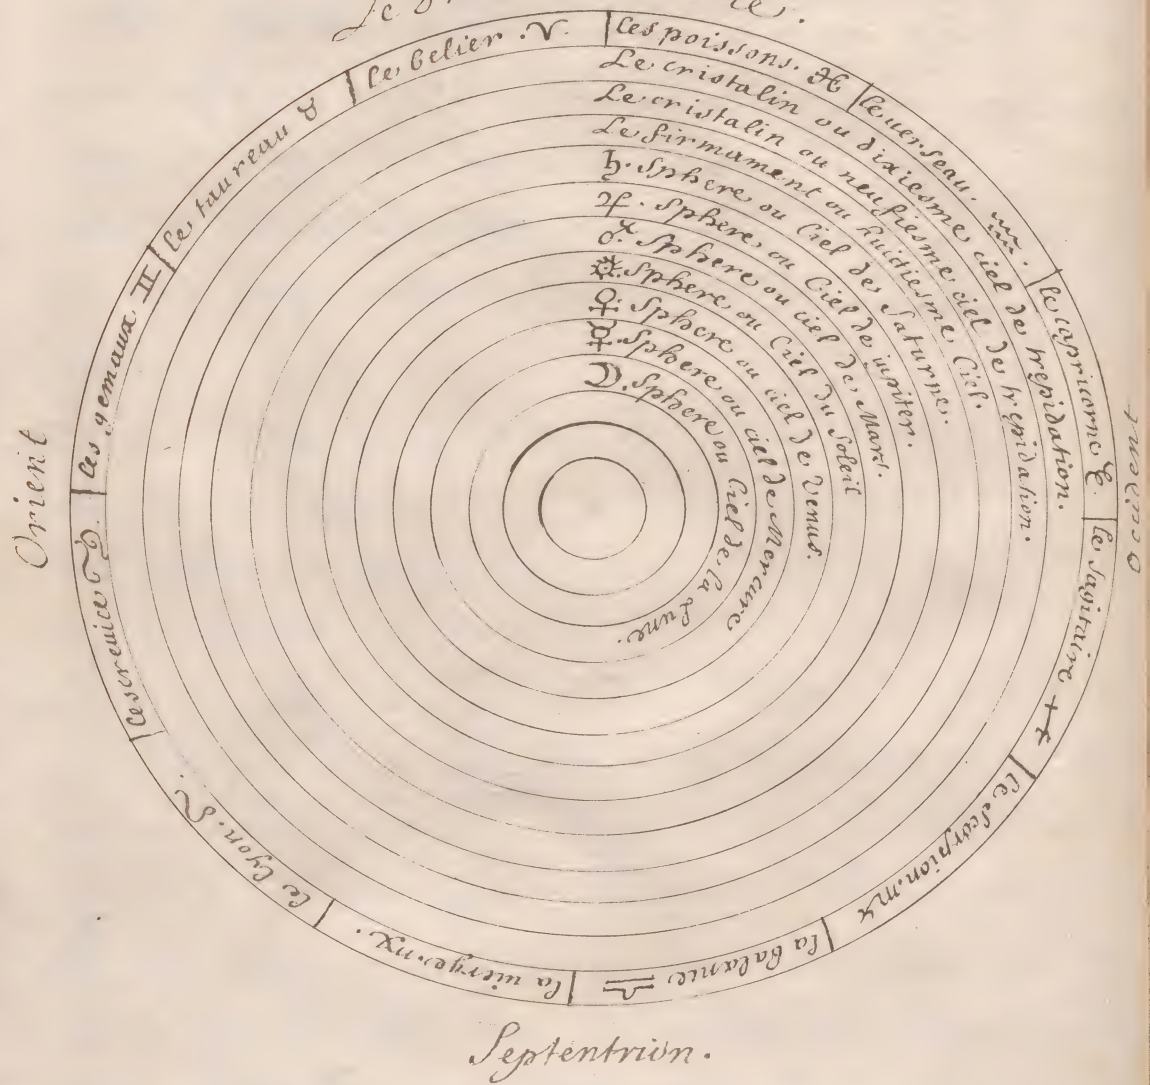 Le
les poissons. ♓
le uerseau. ♒.
le capricorne ♑.
le sagitaire ♐
le scorpion. ♏
la balance ♎
la uierge. ♍.
le lyon. ♌.
lescreuice ♋
les gemaux ♊
le taureau ♉
le belier. ♈.
Le cristalin ou dixiesme ciel de trepidation.
Le cristalin ou neufiesme ciel de trepidation.
Le firmament ou huictiesme Ciel.
♄. Sphere ou Ciel de Saturne.
♃. Sphere ou Ciel de iupiter.
♂. Sphere ou ciel de Mars.
☼. Sphere ou Ciel du Soleil
♀. Sphere ou ciel de Venus.
☿. Sphere ou ciel de Mercure
☽. Sphere ou Ciel de la Lune.
Orient
occident
Septentrion.